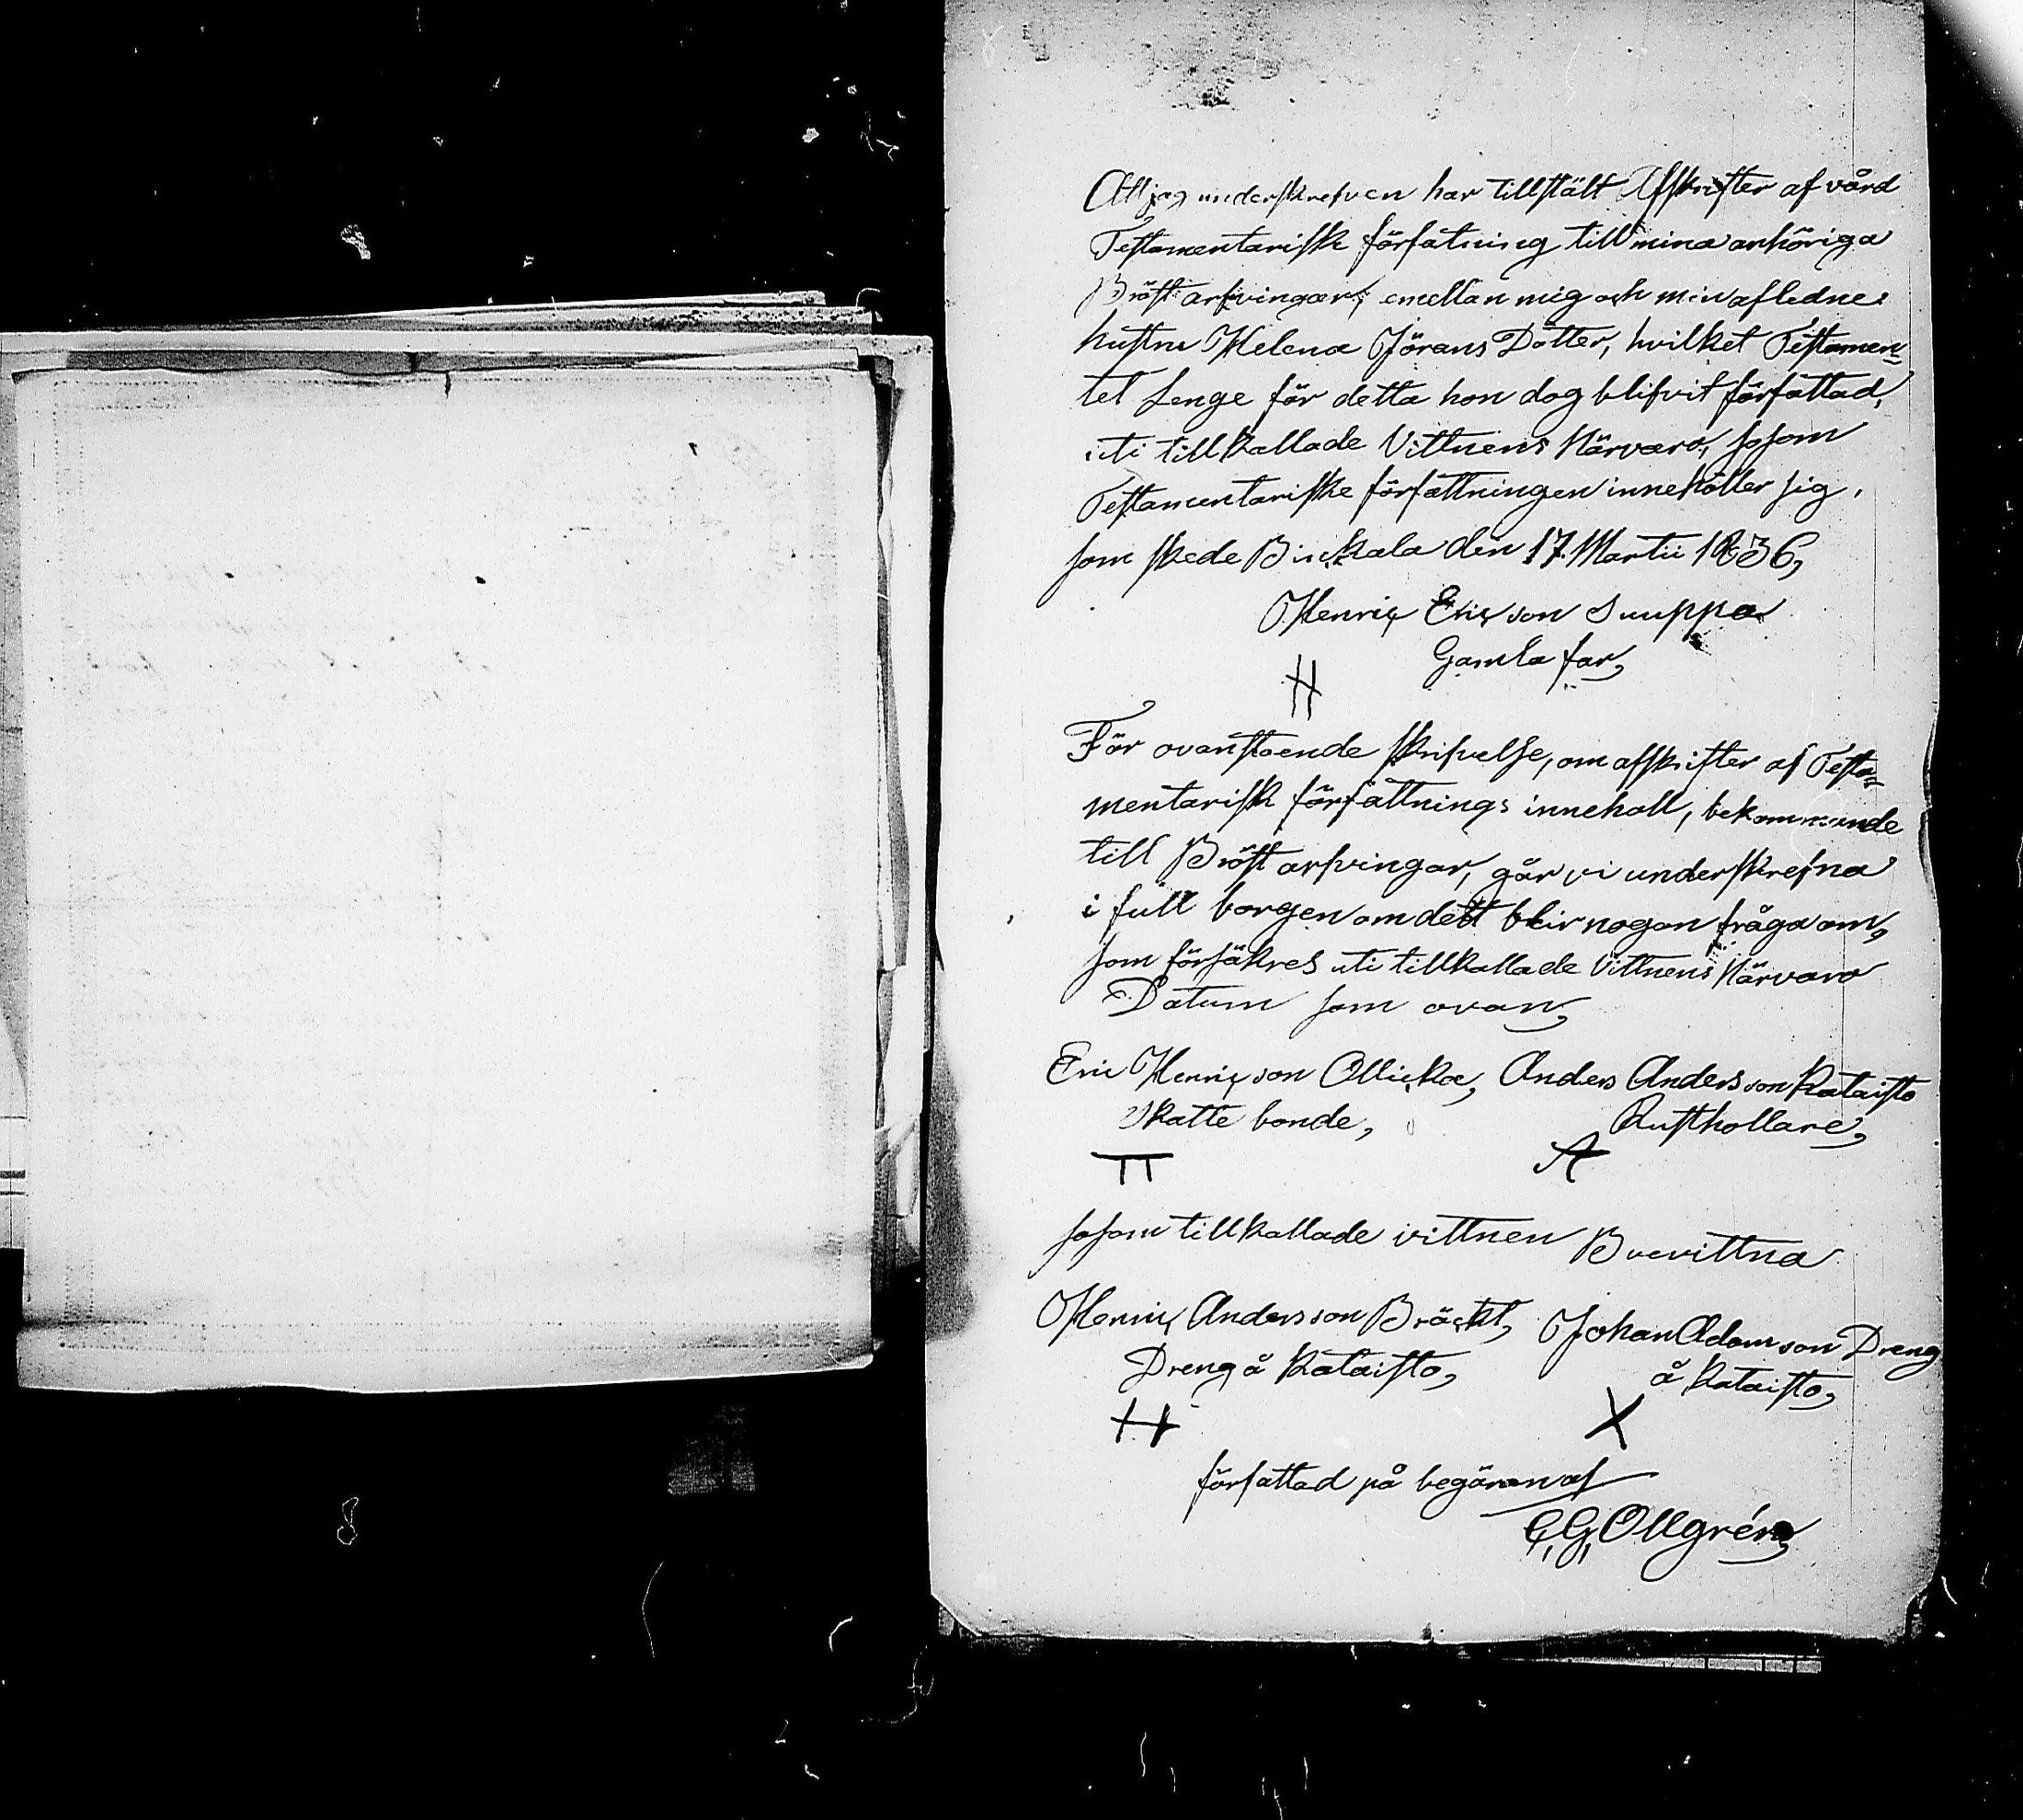 Att jag underskrefven har tillstält Afskrifter af vård
Testamentariske förfatning till mina anhöriga
Bröst arfvingar, emellan mig och min aflednes
hustru Helena Jörans Dotter, hvilket Testamen=
tet lenge för detta hon dog blifvit författad,
uti tillkallade Vittnens Närvaro, såsom
Testamentariske författningen innehåller sig,
som skede Birkala den 17 Martii 1836,
Henric Ericson Suuppa
Gamla far,
H
För ovanstaende skrifvelse, om afskrifter af Testa=
mentarisk författnings innehall, bekommande
till Bröst arfvingar, går vi underskrefna
i full borgen om dett blir nogon fråga om,
som försäkres uti tillkallade Vittnens Närvaro
Datum som ovan,
Eric Henricson Ollicka, Anders Andersson Kataisto
Skatte bonde, Rusthollare,
A
såsom tillkallade vittnen Bevittna
Henric Andersson Bräckt, Johan Adamson Dreng
Dreng å Kataisto, å Kataisto,
H X
författad på begäran af
G, G, Ollgrén,
8